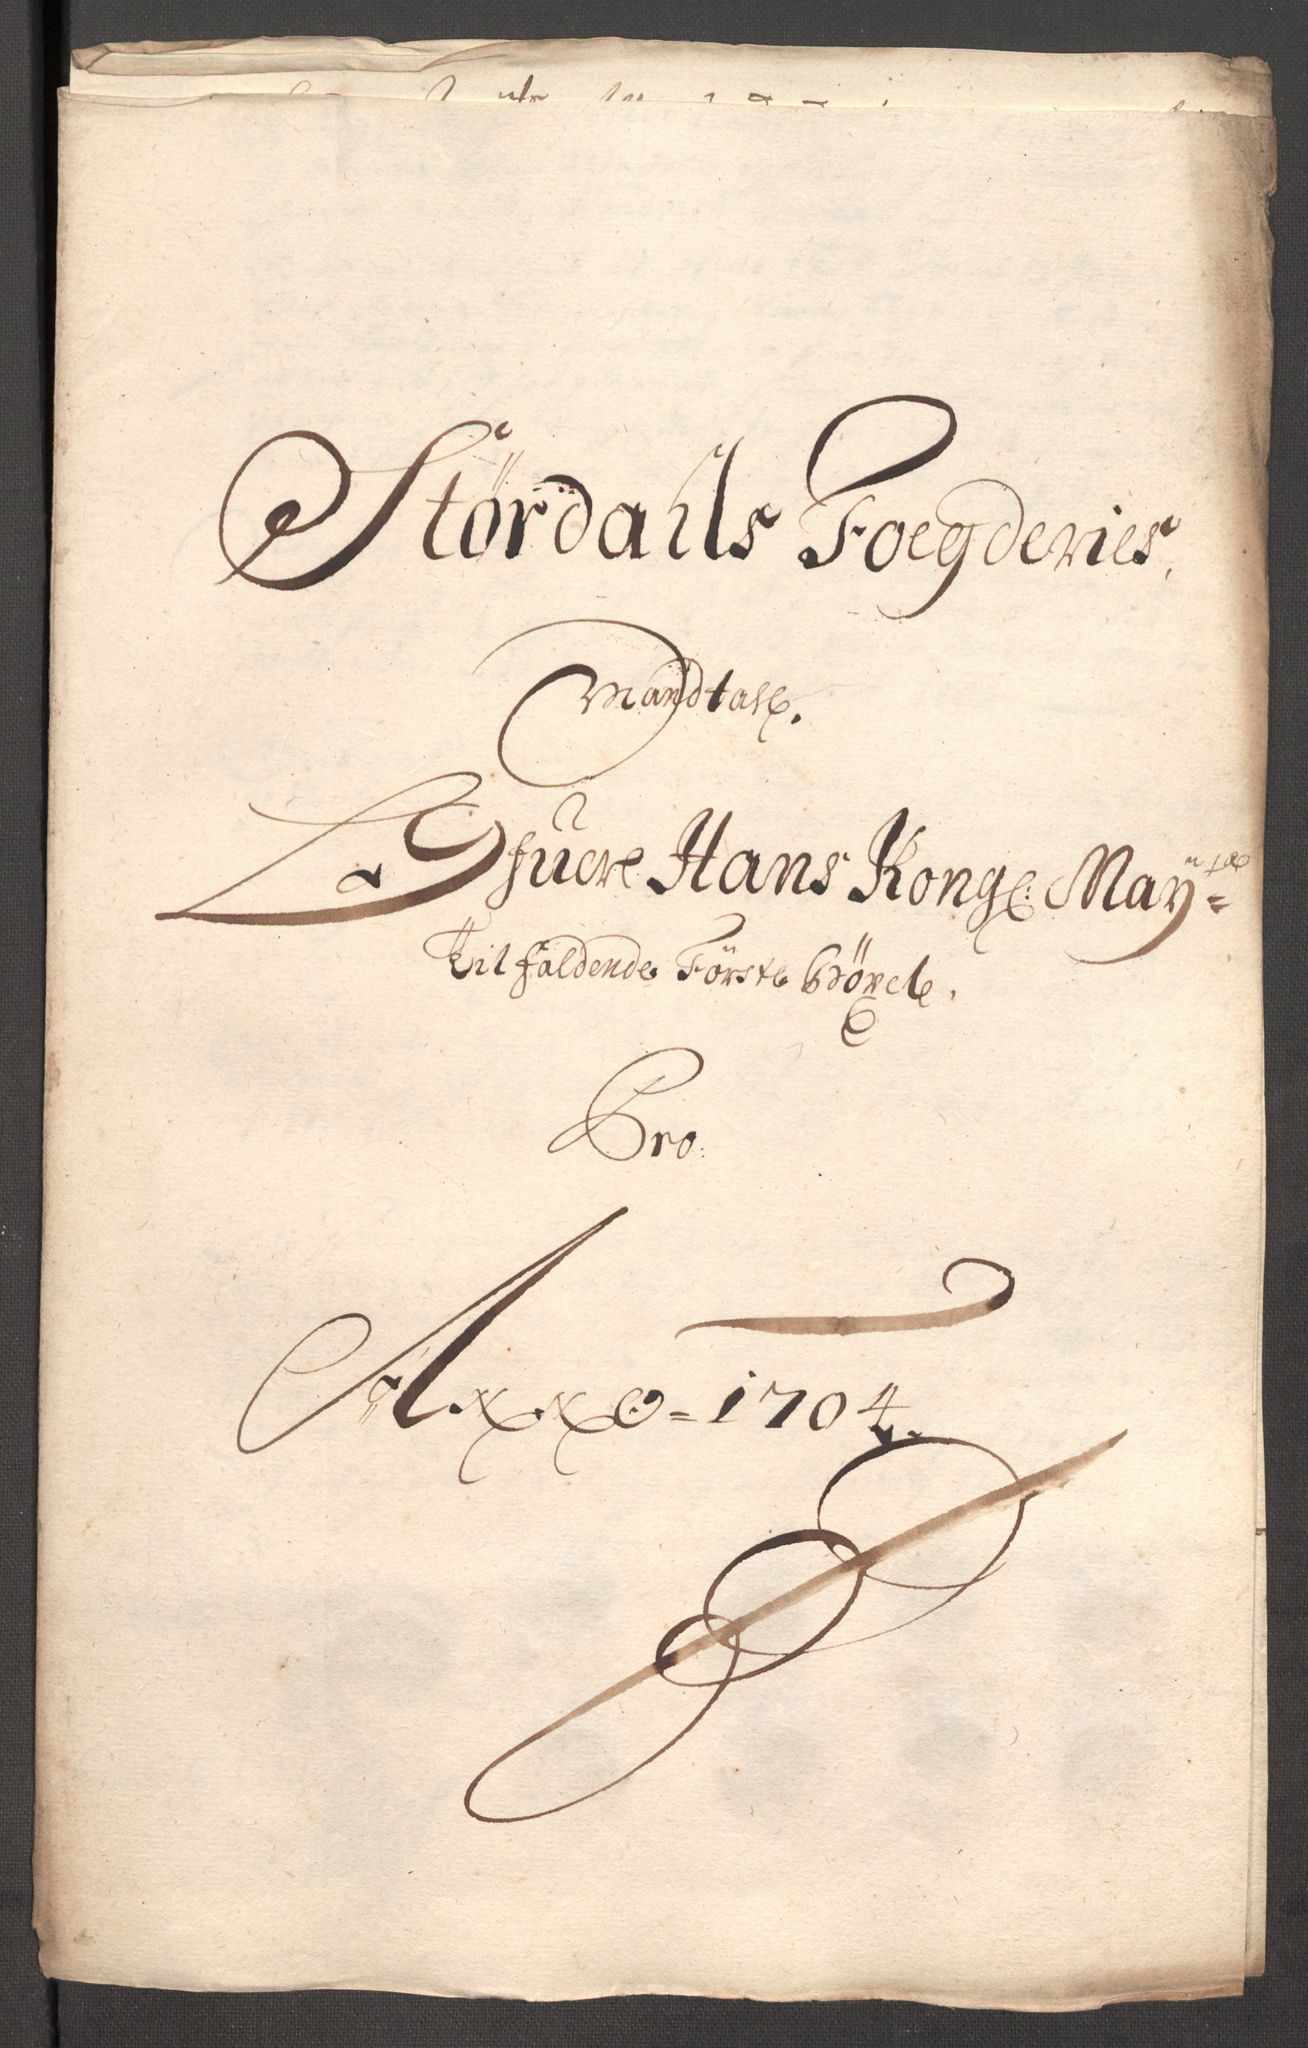 Størdalls Foegderies
Mandtall.
Ofuer Hans Kongl: Maytz
Tilfaldende Förste
Pro:
Anno = 1704.